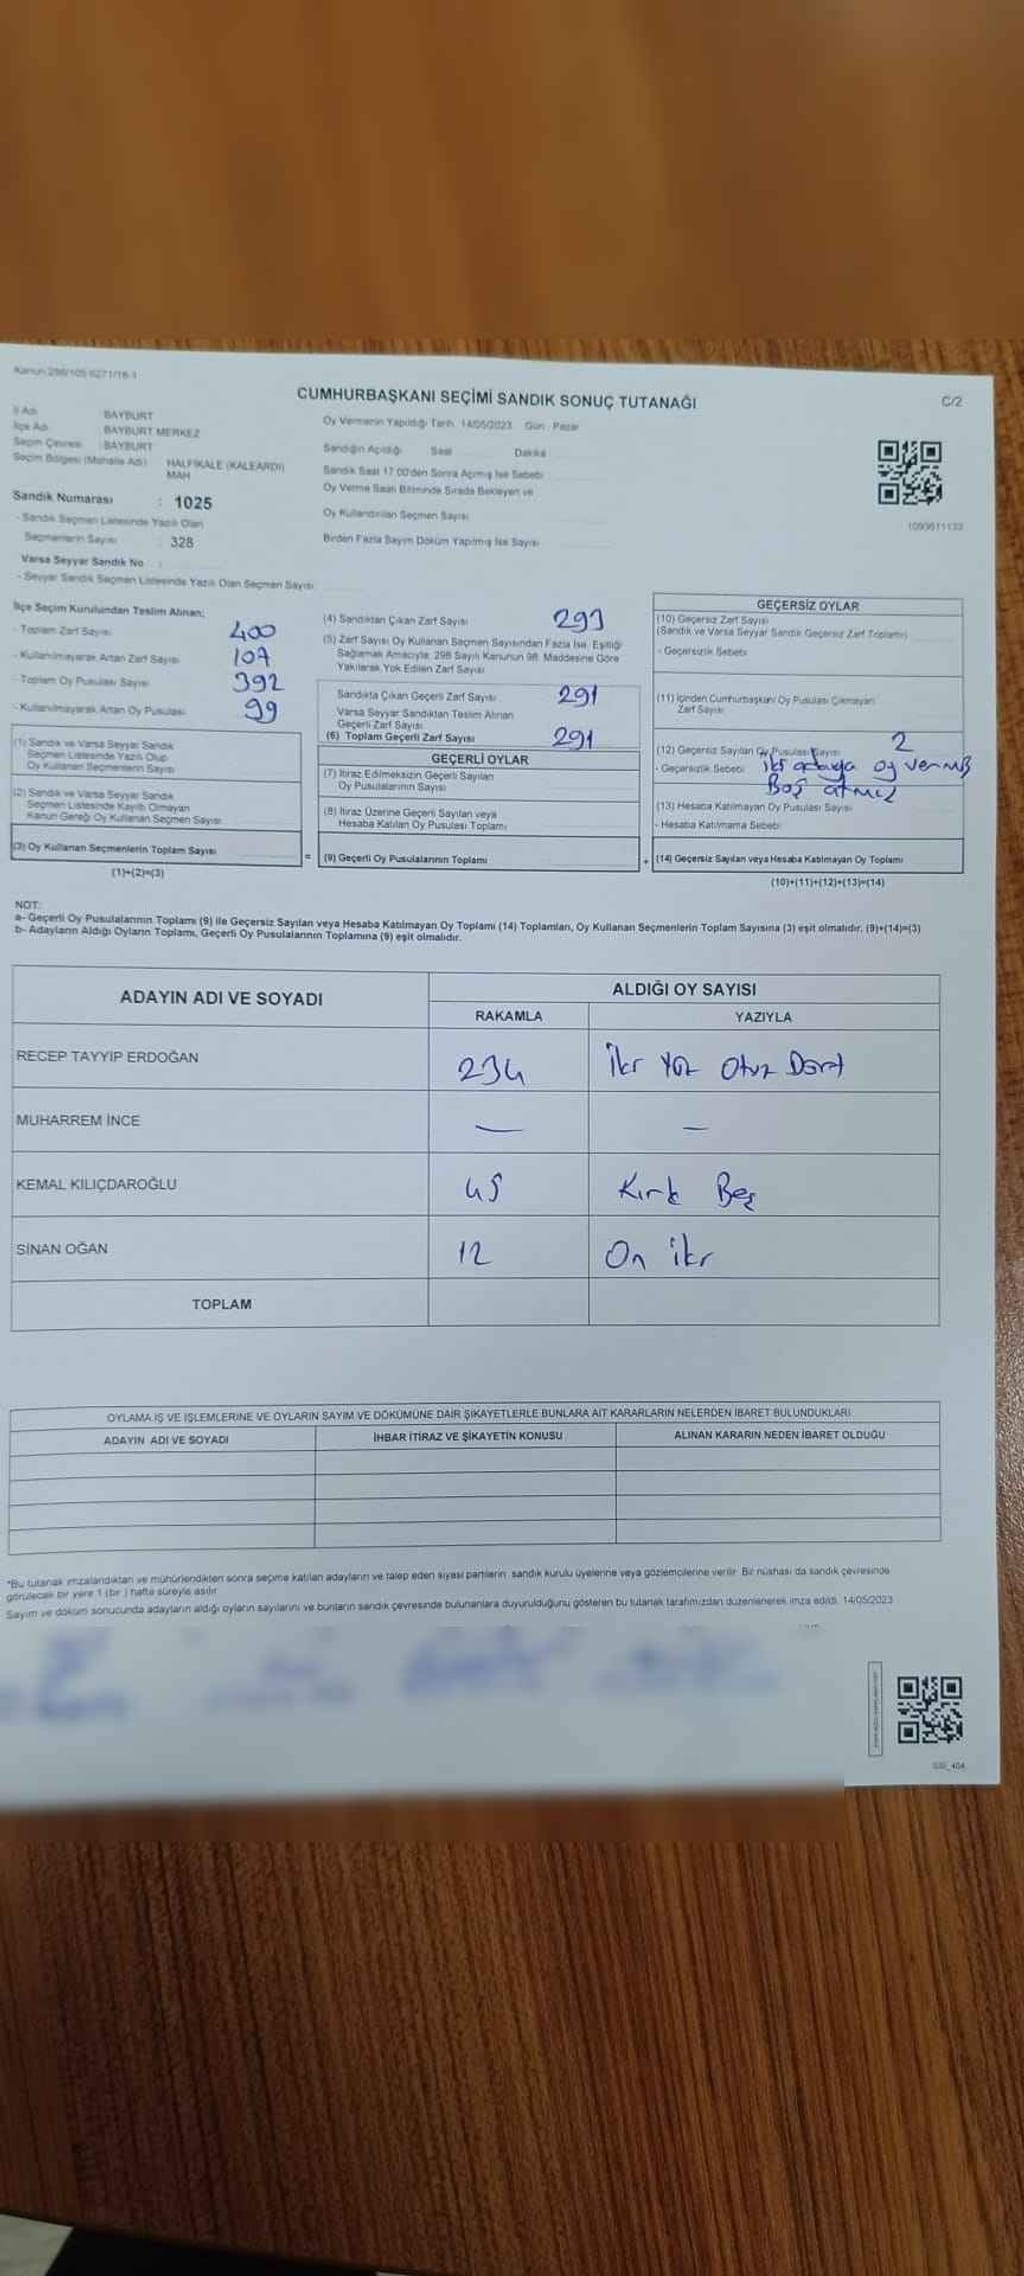 Kanun 298/105 6271/16-1
CUMHURBAŞKANI SEÇİMİ SANDIK SONUÇ TUTANAĞI
C/2
İl Adı BAYBURT
İlçe Adı BAYBURT MERKEZ
Seçim Çevresi BAYBURT
Seçim Bölgesi (Mahalle Adı) HALFİKALE (KALEARDI) MAH
Sandık Numarası : 1025
- Sandık Seçmen Listesinde Yazılı Olan
Seçmenlerin Sayısı : 328
Varsa Seyyar Sandık No :
- Seyyar Sandık Seçmen Listesinde Yazılı Olan Seçmen Sayısı
Oy Vermenin Yapıldığı Tarih 14/05/2023 Gün : Pazar
Sandığın Açıldığı Saat Dakika
Sandık Saat 17:00'den Sonra Açılmış İse Sebebi
Oy Verme Saati Bitiminde Sırada Bekleyen ve
Oy Kullandırılan Seçmen Sayısı
Birden Fazla Sayım Döküm Yapılmış İse Sayısı
1090611133
İlçe Seçim Kurulundan Teslim Alınan;
- Toplam Zarf Sayısı 400
- Kullanılmayarak Artan Zarf Sayısı 107
- Toplam Oy Pusulası Sayısı 392
- Kullanılmayarak Artan Oy Pusulası 99
(1) Sandık ve Varsa Seyyar Sandık
Seçmen Listesinde Yazılı Olup
Oy Kullanan Seçmenlerin Sayısı
(2) Sandık ve Varsa Seyyar Sandık
Seçmen Listesinde Kayıtlı Olmayan
Kanun Gereği Oy Kullanan Seçmen Sayısı
(3) Oy Kullanan Seçmenlerin Toplam Sayısı
(1)+(2)=(3)
(4) Sandıktan Çıkan Zarf Sayısı 293
(5) Zarf Sayısı Oy Kullanan Seçmen Sayısından Fazla İse, Eşitliği
Sağlamak Amacıyla, 298 Sayılı Kanunun 98. Maddesine Göre
Yakılarak Yok Edilen Zarf Sayısı
Sandıkta Çıkan Geçerli Zarf Sayısı 291
Varsa Seyyar Sandıktan Teslim Alınan
Geçerli Zarf Sayısı
(6) Toplam Geçerli Zarf Sayısı 291
GEÇERLİ OYLAR
(7) İtiraz Edilmeksizin Geçerli Sayılan
Oy Pusulalarının Sayısı
(8) İtiraz Üzerine Geçerli Sayılan veya
Hesaba Katılan Oy Pusulası Toplamı
= (9) Geçerli Oy Pusulalarının Toplamı
GEÇERSİZ OYLAR
(10) Geçersiz Zarf Sayısı
(Sandık ve Varsa Seyyar Sandık Geçersiz Zarf Toplamı)
- Geçersizlik Sebebi
(11) İçinden Cumhurbaşkanı Oy Pusulası Çıkmayan
Zarf Sayısı
(12) Geçersiz Sayılan Oy Pusulası Sayısı 2
- Geçersizlik Sebebi iki adaya oy vermiş
Boş atmış
(13) Hesaba Katılmayan Oy Pusulası Sayısı
- Hesaba Katılmama Sebebi
+ (14) Geçersiz Sayılan veya Hesaba Katılmayan Oy Toplamı
(10)+(11)+(12)+(13)=(14)
NOT:
a- Geçerli Oy Pusulalarının Toplamı (9) ile Geçersiz Sayılan veya Hesaba Katılmayan Oy Toplamı (14) Toplamları, Oy Kullanan Seçmenlerin Toplam Sayısına (3) eşit olmalıdır. (9)+(14)=(3)
b- Adayların Aldığı Oyların Toplamı, Geçerli Oy Pusulalarının Toplamına (9) eşit olmalıdır.
ADAYIN ADI VE SOYADI ALDIĞI OY SAYISI
RAKAMLA YAZIYLA
RECEP TAYYİP ERDOĞAN 234 İki Yüz Otuz Dört
MUHARREM İNCE — —
KEMAL KILIÇDAROĞLU 45 Kırk Beş
SİNAN OĞAN 12 On iki
TOPLAM
OYLAMA İŞ VE İŞLEMLERİNE VE OYLARIN SAYIM VE DÖKÜMÜNE DAİR ŞİKAYETLERLE BUNLARA AİT KARARLARIN NELERDEN İBARET BULUNDUKLARI
ADAYIN ADI VE SOYADI İHBAR İTİRAZ VE ŞİKAYETİN KONUSU ALINAN KARARIN NEDEN İBARET OLDUĞU
*Bu tutanak imzalandıktan ve mühürlendikten sonra seçime katılan adayların ve talep eden siyasi partilerin, sandık kurulu üyelerine veya gözlemcilerine verilir. Bir nüshası da sandık çevresinde
görülecek bir yere 1 (bir ) hafta süreyle asılır.
Sayım ve döküm sonucunda adayların aldığı oyların sayılarını ve bunların sandık çevresinde bulunanlara duyurulduğunu gösteren bu tutanak tarafımızdan düzenlenerek imza edildi. 14/05/2023